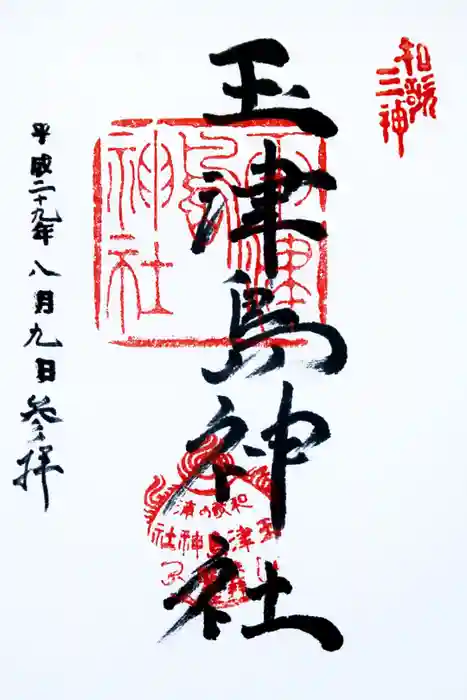 和歌三神
玉津島神社
玉津島神社
和歌の浦
玉津島神社
平成二十九年八月九日参拝